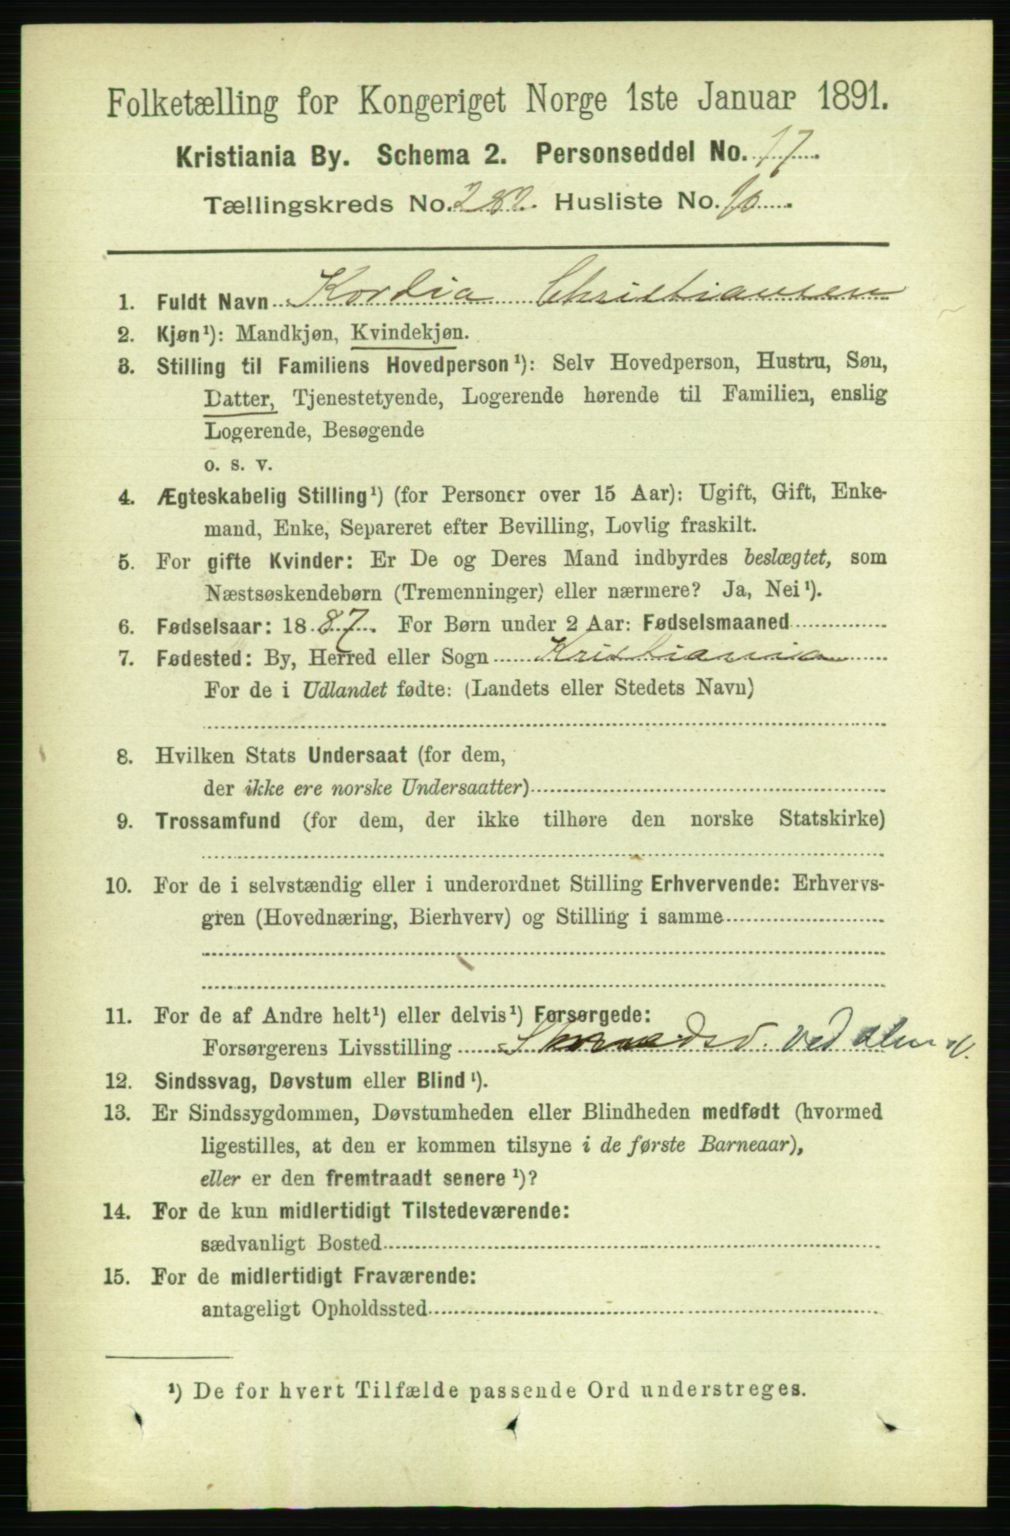 Folketælling for Kongeriget Norge 1ste Januar 1891.
Kristiania By. Schema 2. Personseddel No. 17
Tællingskreds No. 282. Husliste No. 10
1. Fuldt Navn Kordia Christiansen
2. Kjøn¹): Mandkjøn, Kvindekjøn.
3. Stilling til Familiens Hovedperson¹): Selv Hovedperson, Hustru, Søn,
Datter, Tjenestetyende, Logerende hørende til Familien, enslig
Logerende, Besøgende
o. s. v.
4. Ægteskabelig Stilling¹) (for Personer over 15 Aar): Ugift, Gift, Enke-
mand, Enke, Separeret efter Bevilling, Lovlig fraskilt.
5. For gifte Kvinder: Er De og Deres Mand indbyrdes beslægtet, som
Næstsøskendebørn (Tremenninger) eller nærmere? Ja, Nei¹).
6. Fødselsaar: 1887. For Børn under 2 Aar: Fødselsmaaned
7. Fødested: By, Herred eller Sogn Kristiania
For de i Udlandet fødte: (Landets eller Stedets Navn)
8. Hvilken Stats Undersaat (for dem,
der ikke ere norske Undersaatter)
9. Trossamfund (for dem, der ikke tilhøre den norske Statskirke)
10. For de i selvstændig eller i underordnet Stilling Erhvervende: Erhvervs-
gren (Hovednæring, Bierhverv) og Stilling i samme
11. For de af Andre helt¹) eller delvis¹) Forsørgede:
Forsørgerens Livsstilling ved
12. Sindssvag, Døvstum eller Blind¹).
13. Er Sindssygdommen, Døvstumheden eller Blindheden medfødt (hvormed
ligestilles, at den er kommen tilsyne i de første Barneaar),
eller er den fremtraadt senere¹)?
14. For de kun midlertidigt Tilstedeværende:
sædvanligt Bosted
15. For de midlertidigt Fraværende:
antageligt Opholdssted
¹) De for hvert Tilfælde passende Ord understreges.